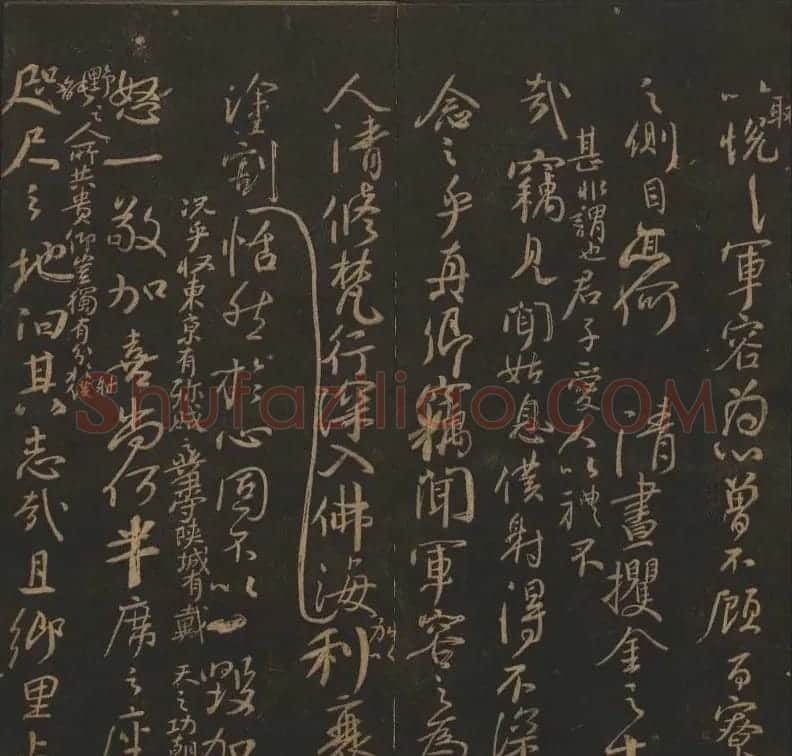 取以悅軍容為心曾不顧百寮
之側目亦何清晝攫金之士
甚非謂也君子愛人以禮不
哉竊見聞姑息僕射得不深
念之乎真卿竊聞軍容之為
人清修梵行深入佛海加以利衰
塗割恬然於心固不以一毀加
況乎收東京有殄賊之業守陝城有戴天之功朝
怒一敬加喜尚何半席之座
野之人所共貴仰豈獨有分於僕射哉
咫尺之地汨其志哉且鄉里上
Shufaziliao.COM